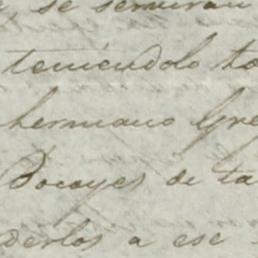 se serviran
teniéndolo
hermano Gre
Bocoyes de ta
derlos a ese